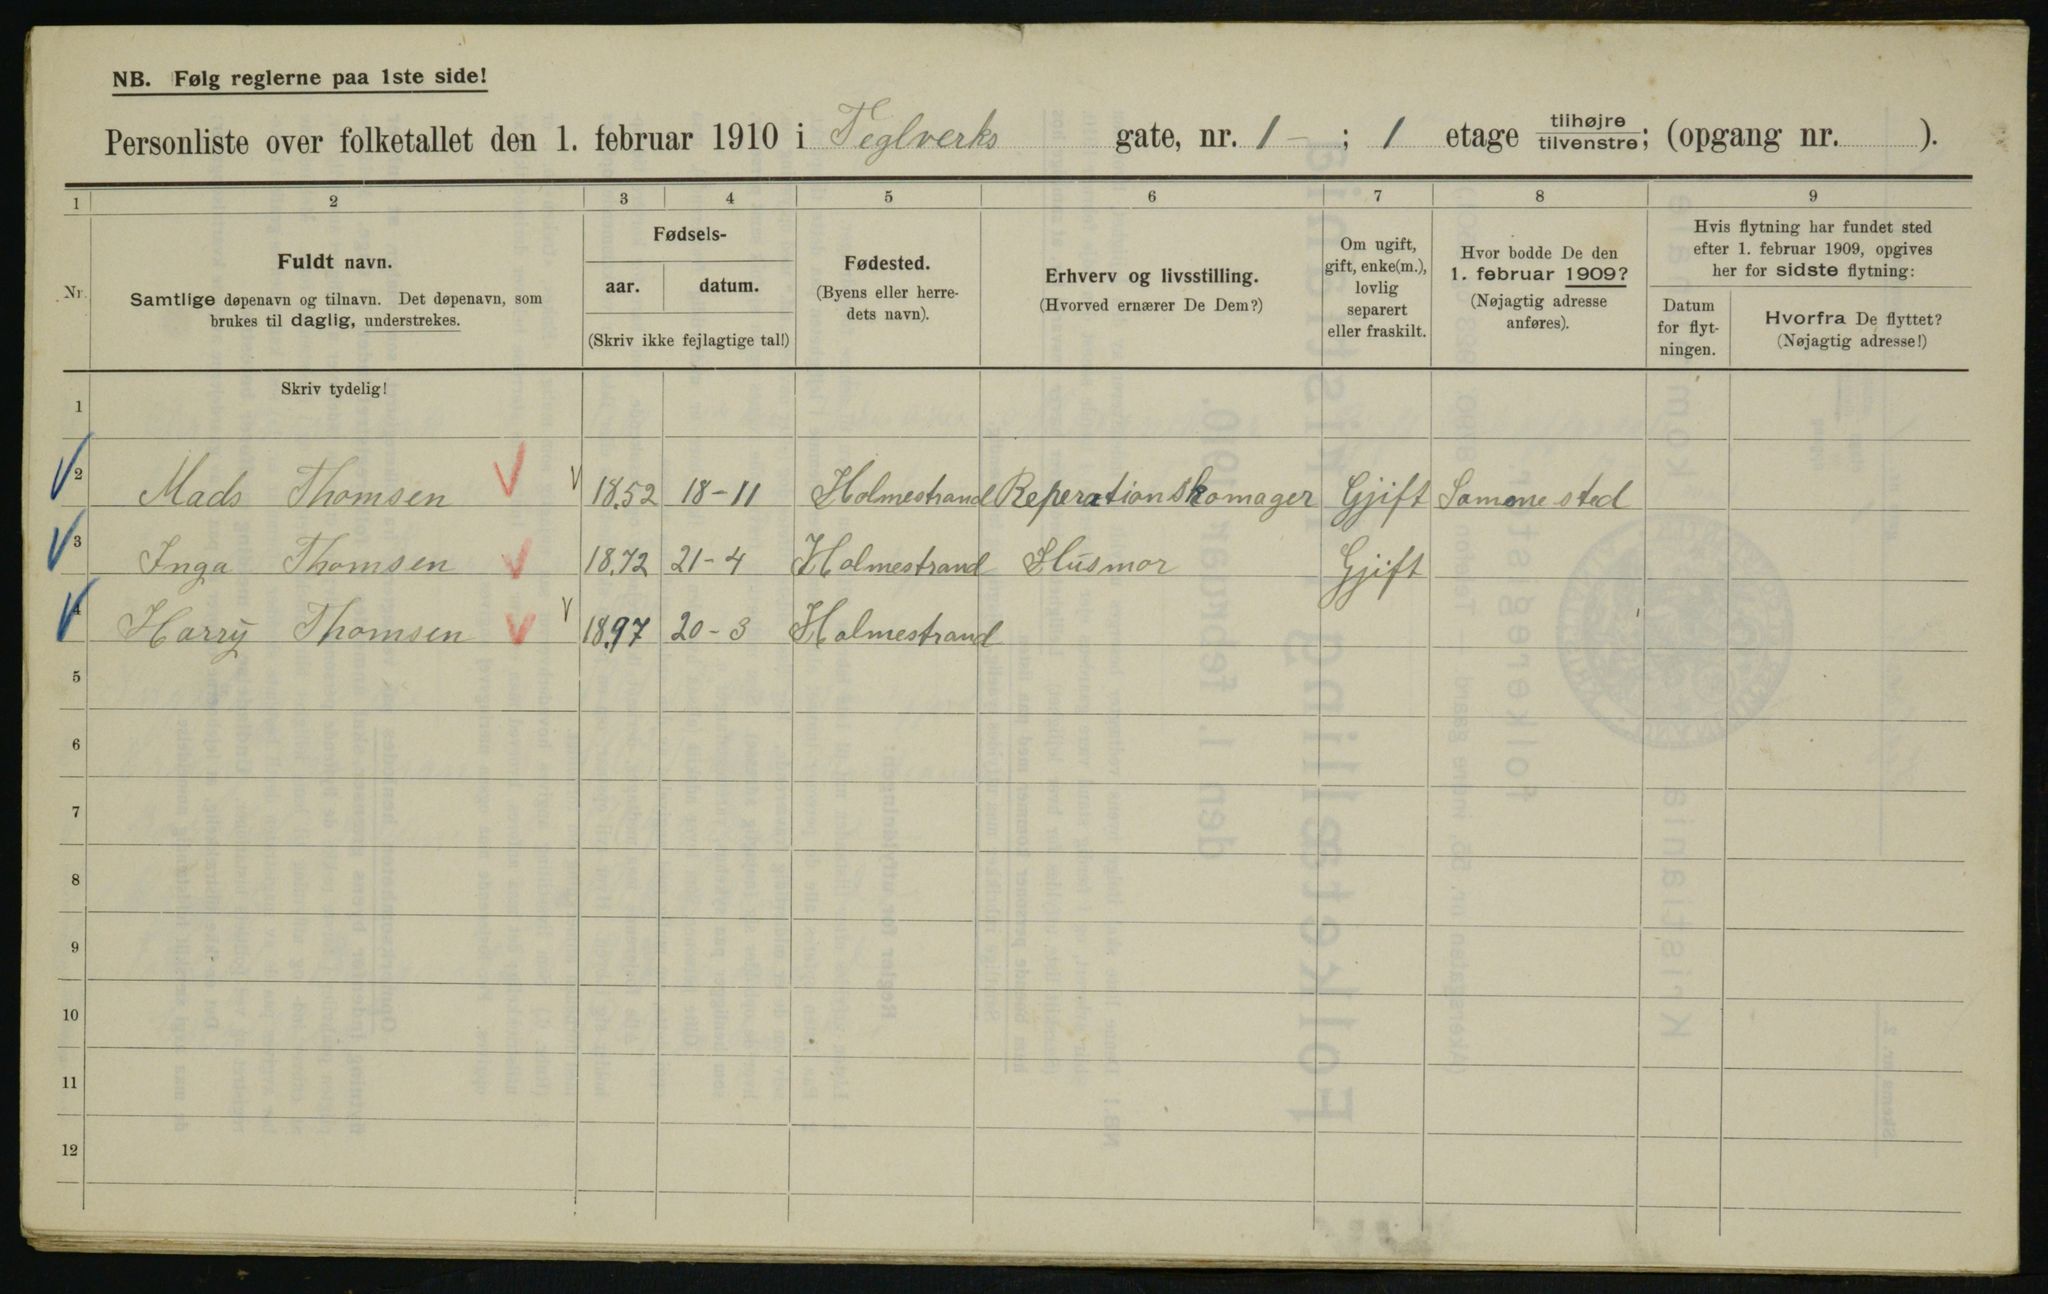 NB. Følg reglerne paa 1ste side!
Personliste over folketallet den 1. februar 1910 i Teglverks gate, nr. 1 - ; 1 etage tilhøjre / tilvenstre; (opgang nr. ).
1 2 3 4 5 6 7 8 9
Nr.
Fuldt navn.
Samtlige døpenavn og tilnavn. Det døpenavn, som
brukes til daglig, understrekes.
Fødsels-
aar. datum.
(Skriv ikke fejlagtige tal!)
Fødested.
(Byens eller herre-
dets navn).
Erhverv og livsstilling.
(Hvorved ernærer De Dem?)
Om ugift,
gift, enke(m.),
lovlig
separert
eller fraskilt.
Hvor bodde De den
1. februar 1909?
(Nøjagtig adresse
anføres).
Hvis flytning har fundet sted
efter 1. februar 1909, opgives
her for sidste flytning:
Datum
for flyt-
ningen.
Hvorfra De flyttet?
(Nøjagtig adresse!)
Skriv tydelig!
1
2 Mads Thomsen 1852 18-11 Holmestrand Reperationskomager Gjift Samme sted
3 Inga Thomsen 1872 21-4 Holmestrand Husmor Gjift
4 Harry Thomsen 1897 20-3 Holmestrand
5
6
7
8
9
10
11
12